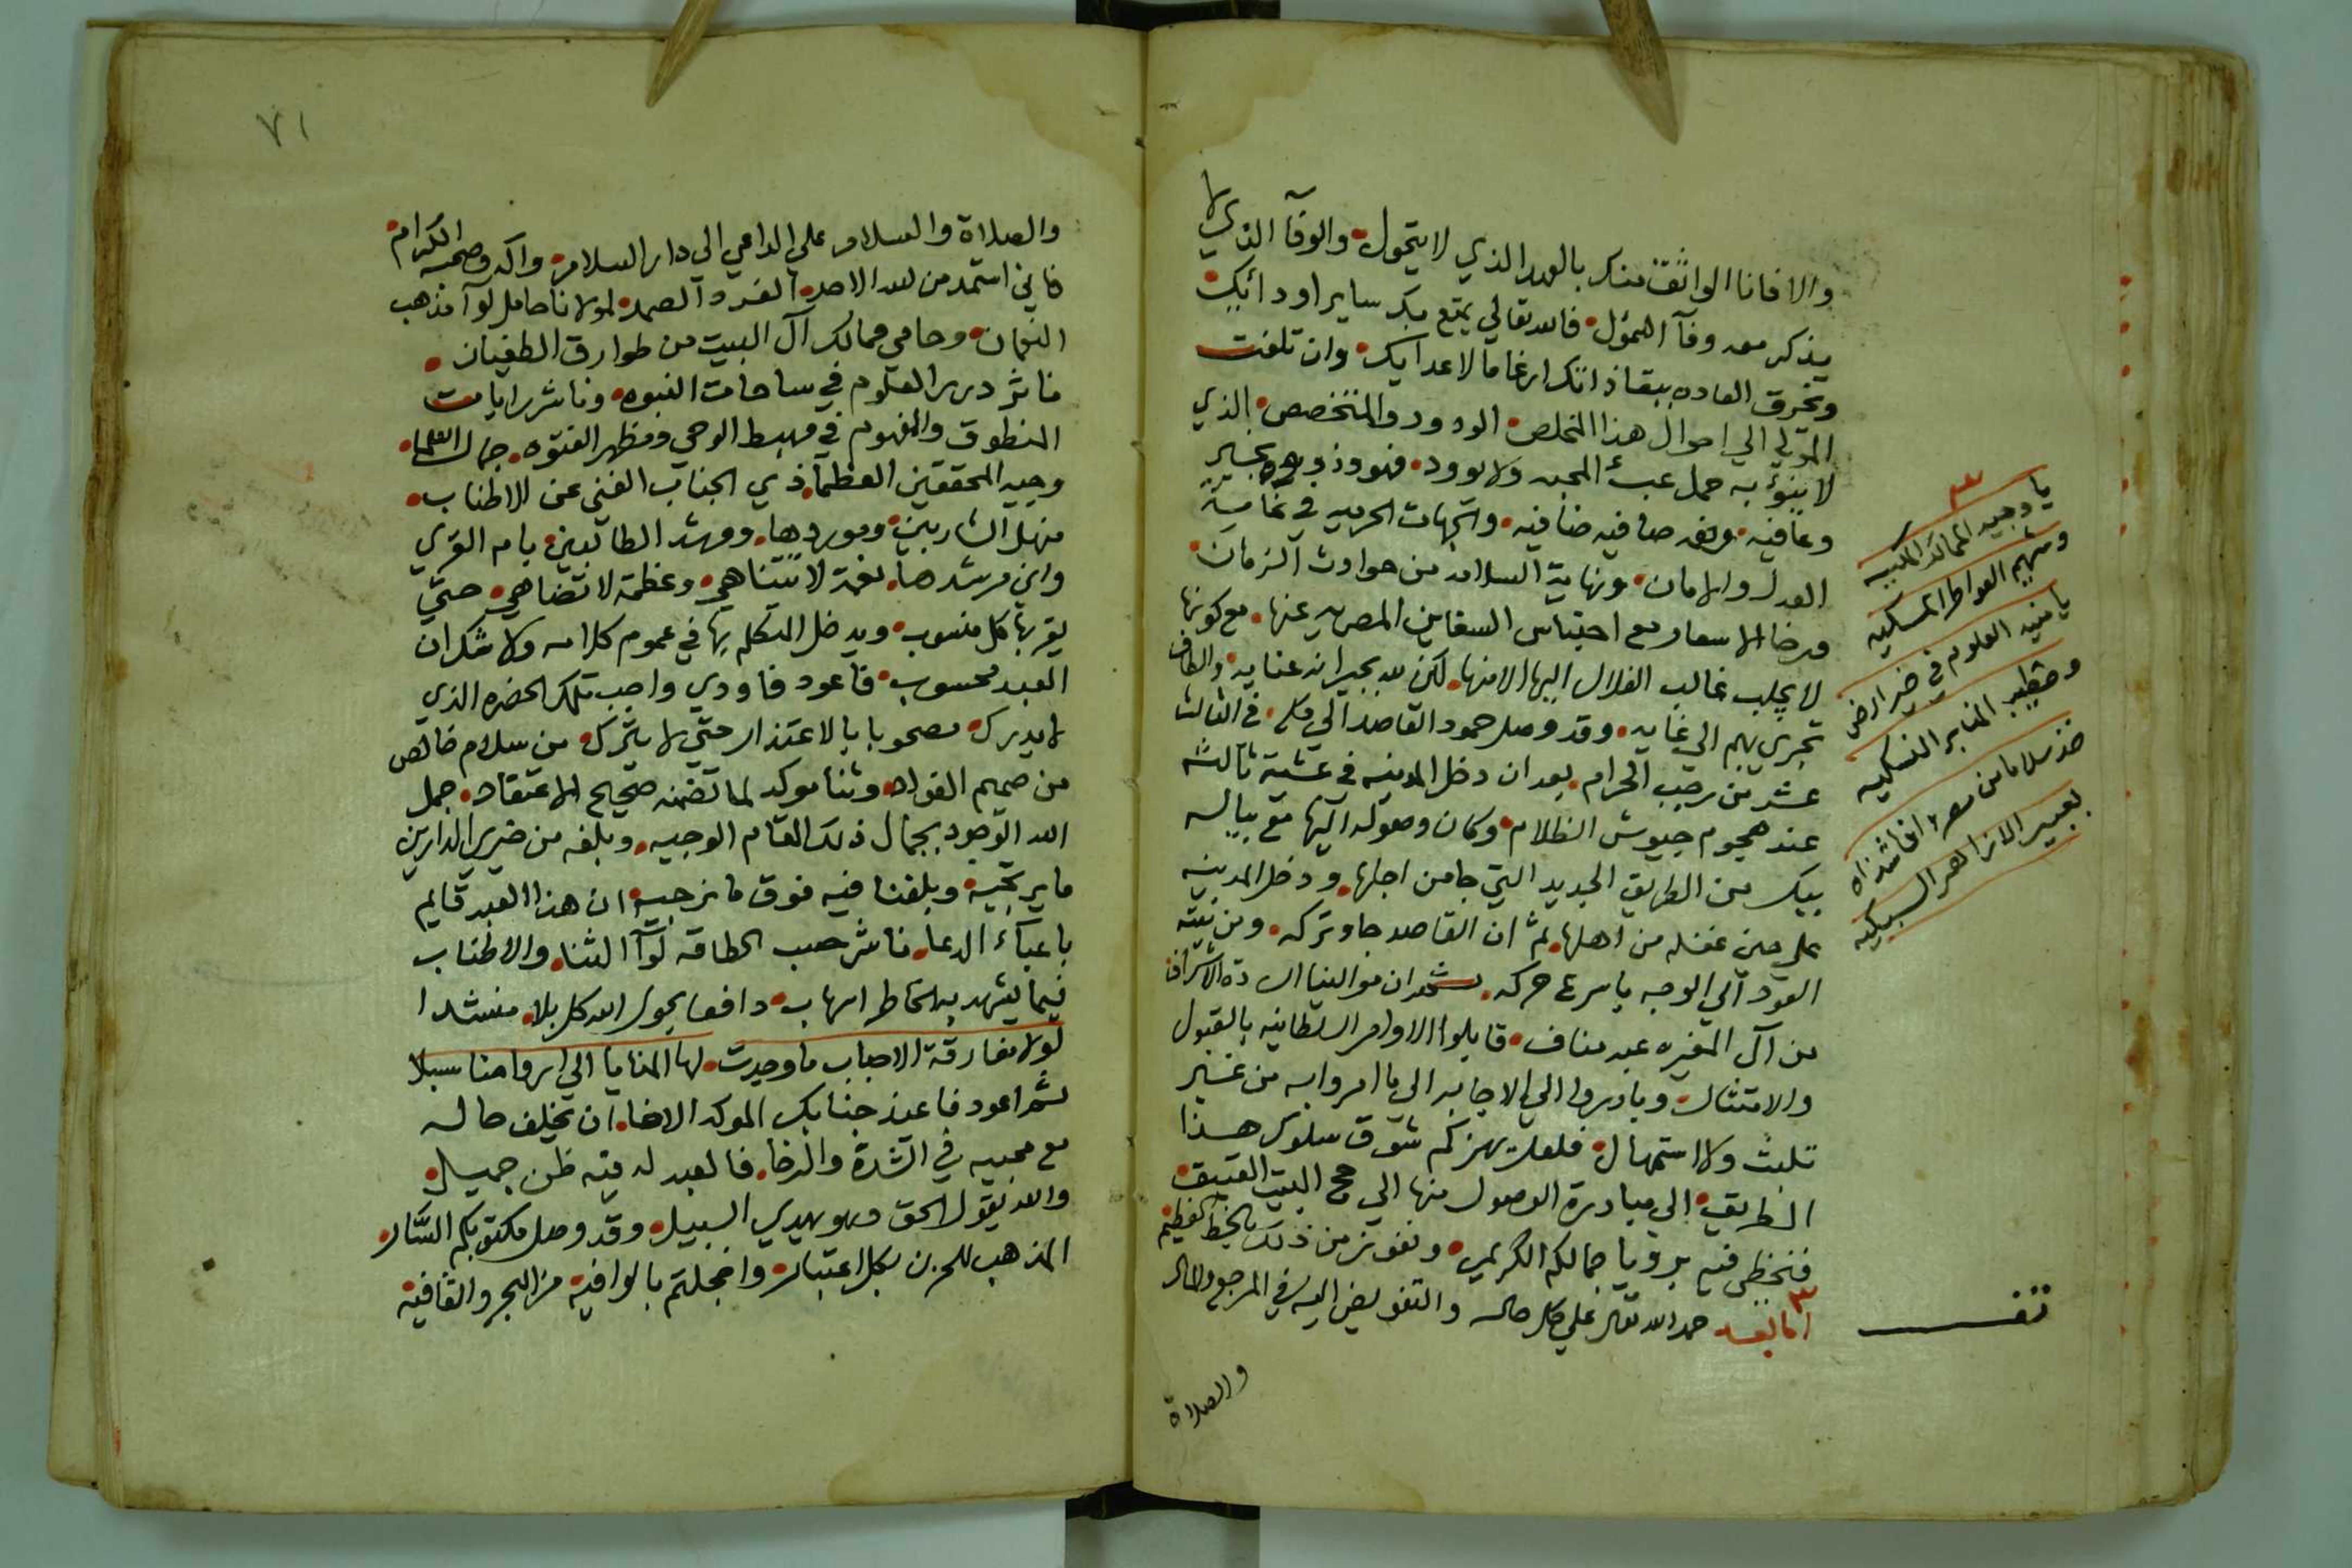 والا فانا الواثق منك بالعهد الذي لا يتحول والوفآ الذي لا
يذكر معه وفآ السمؤل فالله تعالي يمتع بك ساير اودائك
ويخرق العاده ببقا ذاتك ارغاما لاعدايك وان تلفت
المولي الي احوال هذا المخلص الودود والمتخصص الذي
لا ينؤ به حمل عبء المحبه ولا يوود فهو وذووه بخير
وعافيه ونعم صافيه ضافيه والجهات الحرميه في غاية
العدل والامان ونهاية السلامه من حوادث الزمان
ورخا الاسعار مع احتباس السفاين المصريه عنها مع كونها
لا يجلب غالب الغلال اليها الا منها لكن لله بجيرانه عنايه والطاف
تجري بهم الي غايه وقد وصل حمود القاصد الي مكه في الثالث
عشر من رجب الحرام بعد ان دخل المدينه في عشية ثالثه
عند هجوم جيوش الظلام وكان وصوله اليها مع بياله
بيك من الطريق الجديد التي جا من اجلها ودخل المدينه
علي حين غفله من اهلها ثم ان القاصد جا وتركه ومن نيته
العود الي الوجه باسرع حركه ثم ان موالينا الساده الاشراف
من آل المغيره عبد مناف قابلوا الاوامر السلطانيه بالقبول
والامتثال وبادروا الي الاجابه الي ما امروا به من غير
تلبث ولا استمهال فلعل يهزكم شوق سلوك هذا
الطريق الي مبادرة الوصول منها الي حج البيت العتيق
فنحظي فيه برويا جمالكم الكريم ونفوز من ذلك بالحظ العظيم
٣
اما بعد حمد الله تعالي علي كل حال والتفويض اليه في المرجع والمال
والصلاة
٣
يا وجيه الممالك
وشهير العواطر المسكيه
يا منيه العلوم في خير ارض
وخطيب المنابر النسكيه
خذ سلاما من مصر وافا شذاه
بعبير الازاهر السبكيه
تفـ
٧١
والصلاة والسلام على الداعي الي دار السلام واله وصحبه الكرام
فاني استمد من الله الاحد الفرد الصمد لمولانا حامل لوآ مذهب
النعمان وحامي ممالك آل البيت من طوارق الطغيان
ناثر درر العلوم في ساحات النبوه وناشر رايات
المنطوق والمفهوم في مهبط الوحي ومظهر الفتوه جمال العلما
وجيه المحققين العظمآ ذي الجناب الغني عن الاطناب
منهل الشاربين وموردها ومرشد الطالبين بام القري
وابن مرشدها نعمة لا تتناهي وعظمة لا تضاهي حتي
يقر بها كل منسوب ويدخل المتكلم بها في عموم كلامه ولا شك ان
العبد محسوب فاعود فاودي واجب تلك الحضره الذي
لا يدرك مصحوبا بالاعتذار حتي لا يترك من سلام خالص
من صميم الفواد وثنا موكد لما تضمنه صحيح الاعتقاد جمل
الله الوجود بجمال ذلك المقام الوجيه وبلغه من خيري الدارين
ما يرتجيه وبلغنا فيه فوق ما نرجيه ان هذا العبد قايم
باعبآء الدعا ناشر حسب الطاقه لوآ الثنا والاطناب
فيما يشهد به دافعا بحول الله كل بلا منشدا
لولا مفارقة الاحباب ما وجدت لها المنايا الي ارواحنا سبلا
ثم اعود فاعيذ جنابك الموكد الاخا ان تخلف حاله
مع محبيه في الشدة والرخا فالعبد له فيه ظن جميل
والله يقول الحق وهو يهدي السبيل وقد وصل مكتوبكم السار
المذهب للحزن بكل اعتبار واخجلتم بالوافيه من البحر والقافيه